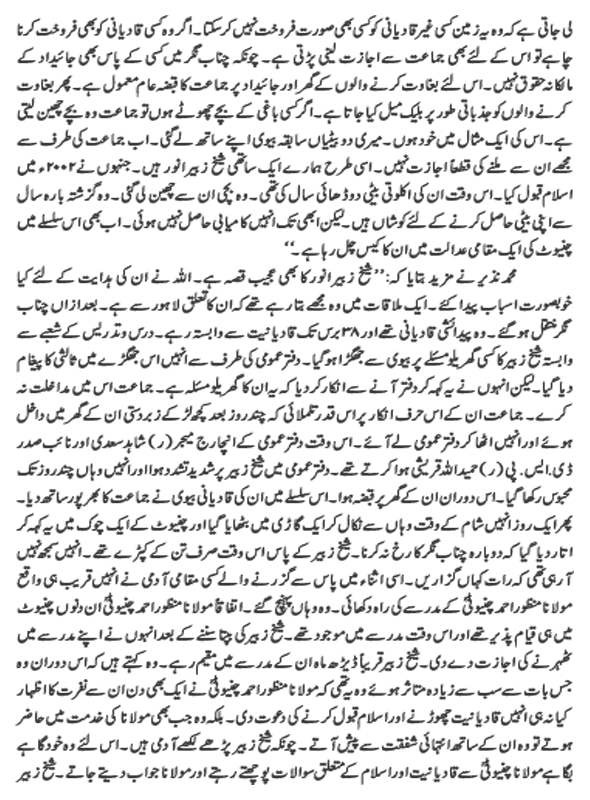 لی جاتی ہے کہ وہ یہ زمین کسی غیر قادیانی کو کسی بھی صورت فروخت نہیں کر سکتا۔ اگر وہ کسی قادیانی کو بھی فروخت کرنا
چاہے تو اس کے لئے بھی جماعت سے اجازت لینی پڑتی ہے۔ چونکہ چناب نگر میں کسی کے پاس بھی جائیداد کے
مالکانہ حقوق نہیں۔ اس لئے بغاوت کرنے والوں کے گھر اور جائیداد پر جماعت کا قبضہ عام معمول ہے۔ پھر بغاوت
کرنے والوں کو جذباتی طور پر بلیک میل کیا جاتا ہے۔ اگر کسی باغی کے بچے چھوٹے ہوں تو جماعت وہ بچے چھین لیتی
ہے۔ اس کی ایک مثال میں خود ہوں۔ میری دو بیٹیاں سابقہ بیوی اپنے ساتھ لے گئی۔ اب جماعت کی طرف سے
مجھے ان سے ملنے کی قطعاً اجازت نہیں۔ اسی طرح ہمارے ایک ساتھی شیخ زبیر انور ہیں۔ جنہوں نے ۲۰۰۲ء میں
اسلام قبول کیا۔ اس وقت ان کی اکلوتی بیٹی دو ڈھائی سال کی تھی۔ وہ بچی ان سے چھین لی گئی۔ وہ گزشتہ بارہ سال
سے اپنی بیٹی حاصل کرنے کے لئے کوشاں ہیں۔ لیکن ابھی تک انہیں کامیابی حاصل نہیں ہوئی۔ اب بھی اس سلسلے میں
چنیوٹ کی ایک مقامی عدالت میں ان کا کیس چل رہا ہے۔‘‘
محمد نذیر نے مزید بتایا کہ: ’’شیخ زبیر انور کا بھی عجیب قصہ ہے۔ اللہ نے ان کی ہدایت کے لئے کیا
خوبصورت اسباب پیدا کئے۔ ایک ملاقات میں وہ مجھے بتا رہے تھے کہ ان کا تعلق لاہور سے ہے۔ بعد ازاں چناب
نگر منتقل ہو گئے۔ وہ پیدائشی قادیانی تھے اور ۳۸ برس تک قادیانیت سے وابستہ رہے۔ درس و تدریس کے شعبے سے
وابستہ شیخ زبیر کا کسی گھریلو مسئلے پر بیوی سے جھگڑا ہو گیا۔ دفتر عمومی کی طرف سے انہیں اس جھگڑے میں ثالثی کا پیغام
دیا گیا۔ لیکن انہوں نے یہ کہہ کر دفتر آنے سے انکار کر دیا کہ یہ ان کا گھریلو مسئلہ ہے۔ جماعت اس میں مداخلت نہ
کرے۔ جماعت ان کے اس حرف انکار پر اس قدر تلملائی کہ چند روز بعد کچھ لڑکے زبردستی ان کے گھر میں داخل
ہوئے اور انہیں اٹھا کر دفتر عمومی لے آئے۔ اس وقت دفتر عمومی کے انچارج میجر (ر) شاہد سعدی اور نائب صدر
ڈی.ایس.پی (ر) حمید اللہ قریشی ہوا کرتے تھے۔ دفتر عمومی میں شیخ زبیر پر شدید تشدد ہوا اور انہیں وہاں چند روز تک
محبوس رکھا گیا۔ اس دوران ان کے گھر پر قبضہ ہوا۔ اس سلسلے میں ان کی قادیانی بیوی نے جماعت کا بھرپور ساتھ دیا۔
پھر ایک روز انہیں شام کے وقت وہاں سے نکال کر ایک گاڑی میں بٹھایا گیا اور چنیوٹ کے ایک چوک میں یہ کہہ کر
اتار دیا گیا کہ دوبارہ چناب نگر کا رخ نہ کرنا۔ شیخ زبیر کے پاس اس وقت صرف تن کے کپڑے تھے۔ انہیں سمجھ نہیں
آ رہی تھی کہ رات کہاں گزاریں۔ اسی اثناء میں پاس سے گزرنے والے کسی مقامی آدمی نے انہیں قریب ہی واقع
مولانا منظور احمد چنیوٹیؒ کے مدرسے کی راہ دکھائی۔ وہ وہاں پہنچ گئے۔ اتفاقاً مولانا منظور احمد چنیوٹیؒ ان دنوں چنیوٹ
میں ہی قیام پذیر تھے اور اس وقت مدرسے میں موجود تھے۔ شیخ زبیر کی بپتا سننے کے بعد انہوں نے اپنے مدرسے میں
ٹھہرنے کی اجازت دے دی۔ شیخ زبیر تقریباً ڈیڑھ ماہ ان کے مدرسے میں مقیم رہے۔ وہ کہتے ہیں کہ اس دوران وہ
جس بات سے سب سے زیادہ متاثر ہوئے وہ یہ تھی کہ مولانا منظور احمد چنیوٹیؒ نے ایک بھی دن ان سے نفرت کا اظہار
کیا نہ ہی انہیں قادیانیت چھوڑنے اور اسلام قبول کرنے کی دعوت دی۔ بلکہ وہ جب بھی مولانا کی خدمت میں حاضر
ہوتے تو وہ ان کے ساتھ انتہائی شفقت سے پیش آتے۔ چونکہ شیخ زبیر پڑھے لکھے آدمی ہیں۔ اس لئے وہ خود گاہے
بگاہے مولانا چنیوٹیؒ سے قادیانیت اور اسلام کے متعلق سوالات پوچھتے رہتے اور مولانا جواب دیتے جاتے۔ شیخ زبیر